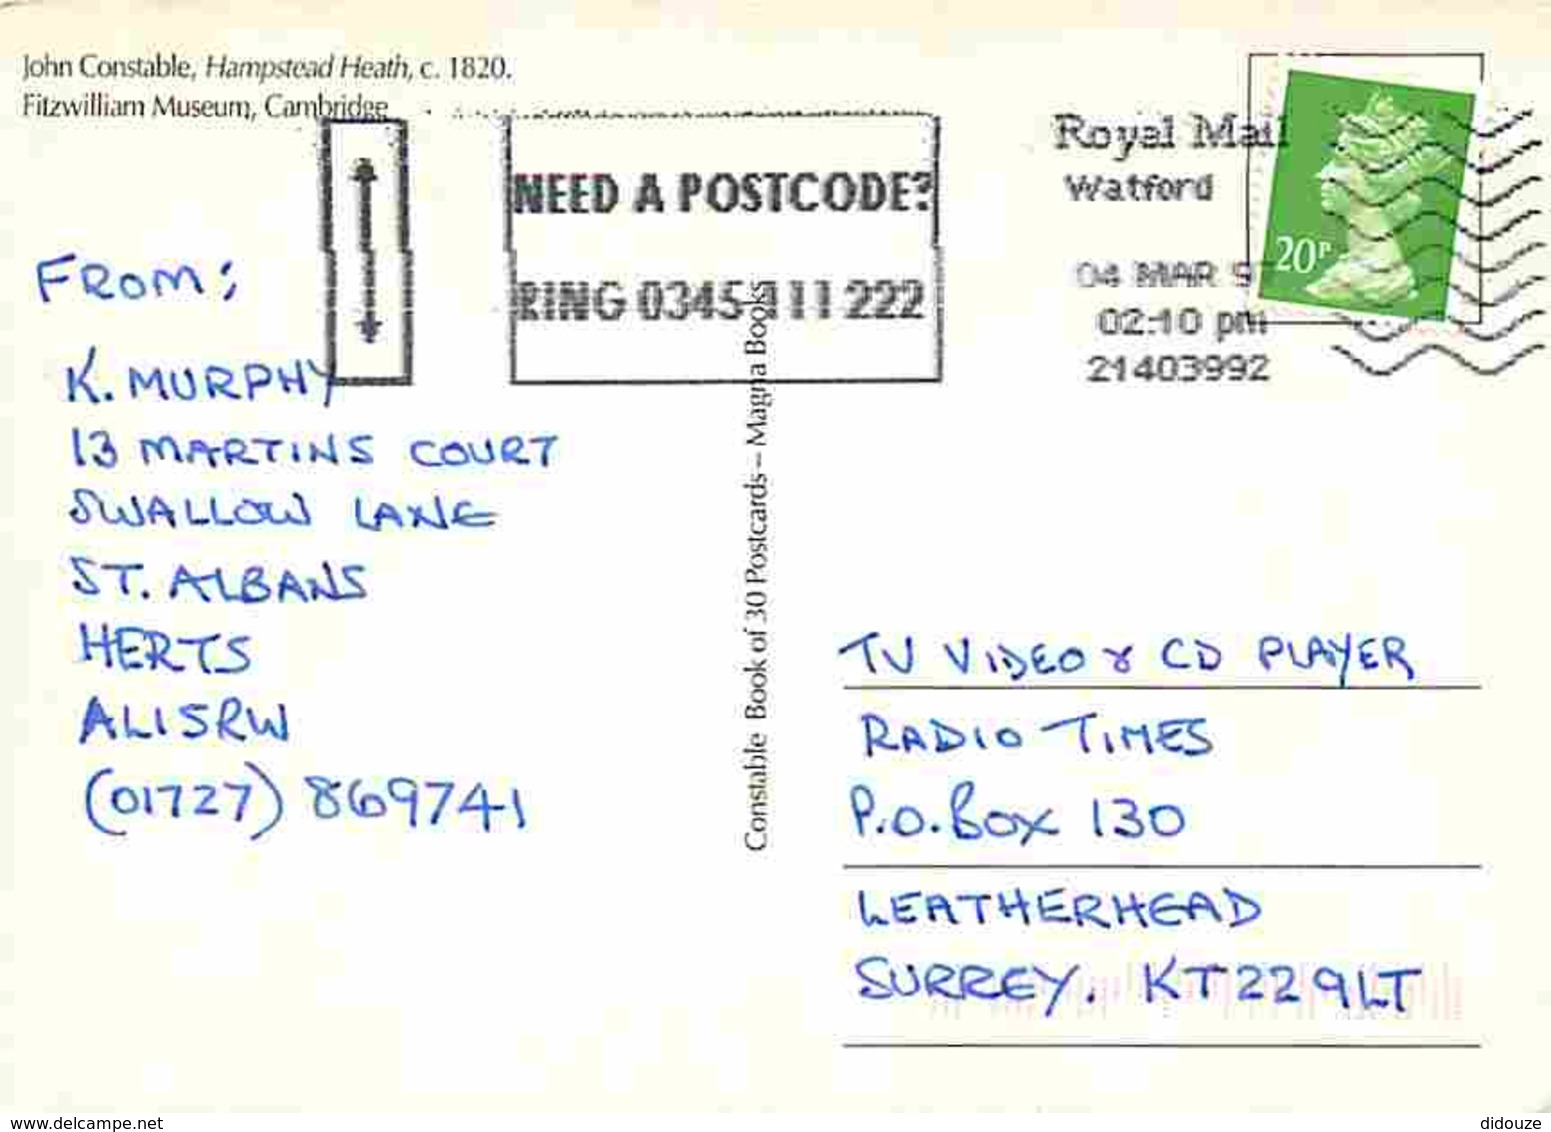 John Constable, Hampstead Heath, c. 1820.
Fitzwilliam Museum, Cambridge
NEED A POSTCODE?
RING 0345 111 222
Royal Mail
Watford
04 MAR 9
02:10 pm
21403992
20P
FROM:
K. MURPHY
13 MARTINS COURT
SWALLOW LANE
ST. ALBANS
HERTS
AL15RW
(01727) 869741
Constable Book of 30 Postcards – Magna Books
TV VIDEO & CD PLAYER
RADIO TIMES
P.O. Box 130
LEATHERHEAD
SURREY. KT229LT
delcampe.net
didouze